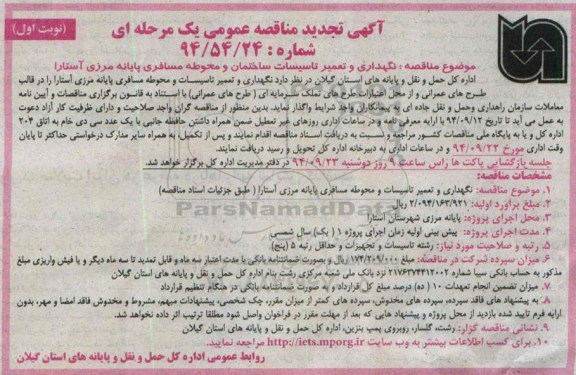 (نوبت اول)
آگهی تجدید مناقصه عمومی یک مرحله ای
شماره : ۹۴/۵۴/۲۴
موضوع مناقصه : نگهداری و تعمیر تاسیسات ساختمان و محوطه مسافری پایانه مرزی آستارا
اداره کل حمل و نقل و پایانه های استان گیلان در نظر دارد نگهداری و تعمیر تاسیسات و محوطه مسافری پایانه مرزی آستارا را در قالب
طرح های عمرانی و از محل اعتبارات طرح های تملک دارایی سرمایه ای ( طرح های عمرانی) با استناد به قانون برگزاری مناقصات و آیین نامه
معاملات سازمان راهداری وحمل و نقل جاده ای به پیمانکاران واجد شرایط واگذار نماید. بدین منظور از مناقصه گران واجد صلاحیت و دارای ظرفیت کار آزاد دعوت
به عمل می آید تا تاریخ ۹۴/۰۹/۱۲ با ارایه معرفی نامه و در ساعات اداری روزهای غیر تعطیل ضمن همراه داشتن حافظه جانبی با یک عدد سی دی خام به اتاق ۲۰۴
اداره کل و یا به پایگاه ملی مناقصات کشور مراجعه و نسبت به دریافت اسناد مناقصه اقدام نمایند و پس از تکمیل، به همراه سایر مدارک درخواستی حداکثر تا پایان
وقت اداری مورخ ۹۴/۰۹/۲۲ و در ساعات اداری به دبیرخانه اداره کل تحویل و رسید دریافت نمایند.
جلسه بازگشایی پاکت ها راس ساعت ۹ روز دوشنبه ۹۴/۰۹/۲۳ در دفتر مدیریت اداره کل برگزار خواهد شد.
مشخصات مناقصه:
۱. موضوع مناقصه: نگهداری و تعمیر تاسیسات و محوطه مسافری پایانه مرزی آستارا ( طبق جزئیات اسناد مناقصه)
۲. مبلغ برآورد اولیه: ۲/۰۹۴/۱۶۳/۹۲۱ ریال
۳. محل اجرای پروژه: پایانه مرزی شهرستان آستارا
۴. مدت اجرای پروژه: پیش بینی اولیه زمان اجرای پروژه ۱ ( یک) سال شمسی
۵. رتبه و صلاحیت مورد نیاز: رشته تاسیسات و تجهیزات و حداقل رتبه ۵ (پنج)
۶. میزان سپرده شرکت در مناقصه: مبلغ ۱۷۴/۲۰۹/۰۰۰ ریال و بصورت ضمانتنامه بانکی با مدت اعتبار سه ماه و قابل تمدید تا سه ماه دیگر و یا فیش واریزی مبلغ
مذکور به حساب بانکی سیبا شماره ۲۱۷۶۳۷۴۴۱۲۰۰۲ نزد بانک ملی شعبه مرکزی رشت بنام اداره کل حمل و نقل و پایانه های استان گیلان
۷. میزان تضمین انجام تعهدات ۱۰ ( ده) درصد مبلغ کل قرارداد، به صورت ضمانتنامه بانکی در هنگام تنظیم قرارداد
۸. به پیشنهاد های فاقد سپرده، سپرده های مخدوش، سپرده های کمتر از میزان مقرر، چک شخصی، پیشنهادات مبهم، مشروط و مخدوش فاقد امضا و مهر، بدون
ارایه فرم تایید شده بازدید از محل پروژه و پیشنهاد هایی که بعد از مهلت مقرر در فراخوان واصل شود مطلقا ترتیب اثر داده نخواهد شد.
۹. نشانی مناقصه گزار: رشت، گلسار، روبروی پمپ بنزین، اداره کل حمل و نقل و پایانه های استان گیلان
۱۰. برای کسب اطلاعات بیشتر به وب سایت http://iets.mporg.ir مراجعه نمایید.
روابط عمومی اداره کل حمل و نقل و پایانه های استان گیلان
ParsNamadData